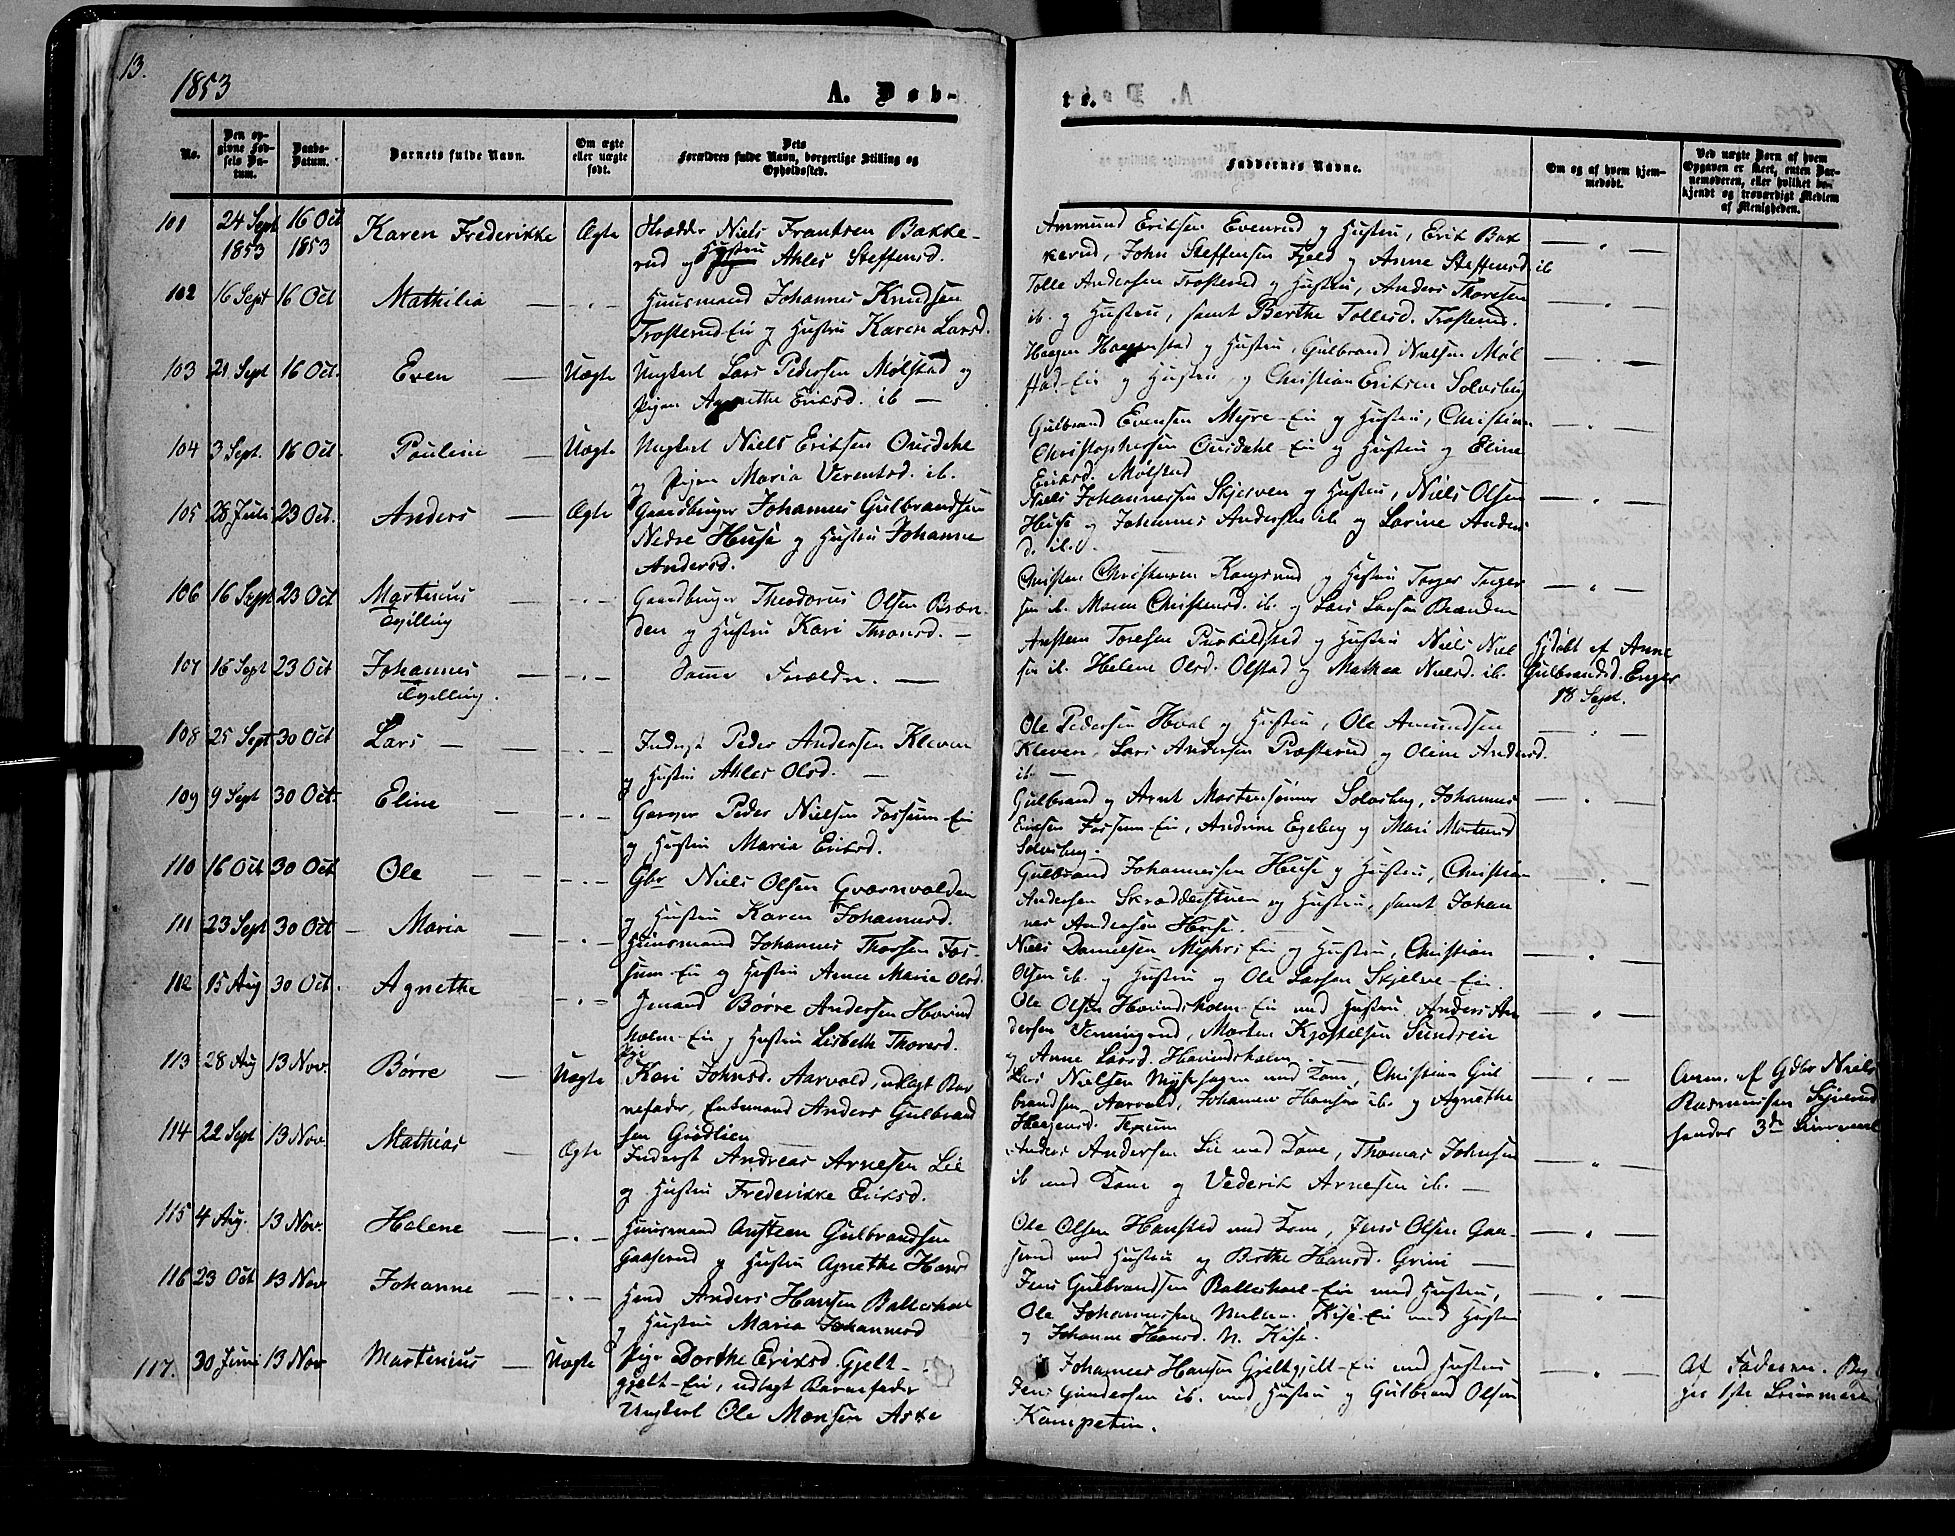 13.
1853
A. Døb-
te.
No.
Den opgivne Fødsels Datum.
Daabs-Datum.
Barnets fulde Navn.
Om ægte eller uægte født.
Dets Forældres fulde Navn, borgerlige Stilling og Opholdssted.
Faddernes Navne.
Om og af hvem hjemmedøbt.
Ved uægte Børn af hvem Opgaven er skeet, enten Barnemoderen, eller hvilket bekjendt og troværdigt Medlem af Menigheden.
101 24 Sept 1853 16 Oct 1853 Karen Frederikke Ægte Niels Frantsen Bakke-
rud og Hustru Ahles Steffensd.
Ammund Eriksen Evenrud og Hustru, Erik Bak
kerud, John Steffensen Fjeld og Anne Steffensd ib
102 16 Sept 16 Oct Mathilia — " — Huusmand Johannes Knudsen
Trosterud-Eie og Hustru Karen Larsd.
Tolle Andersen Trosterud og Hustru, Anders Thoresen
ib. og Hustru, samt Berthe Tollesd. Trosterud.
103 21 Sept 16 Oct. Even — Uægte Ungkarl Lars Pedersen Mølstad og
Pigen Agnethe Eriksd. ib —
Haagen Haagenstad og Hustru, Gulbrand Nielsen Møl
stad-Eie og Hustru, og Christian Eriksen Solvsberg
104 3 Sept. 16 Oct. Pauline — Uægte Ungkarl Niels Eriksen Ousdahl
og Pigen Maria Verentsd. ib.
Gulbrand Evensen Myre-Eie og Hustru, Christian
Christophersen Ousdahl-Eie og Hustru og Eline
Eriksd. Mølstad
105 28 Juli 23 Oct. Anders — Ægte Gaardbruger Johannes Gulbrandsen
Nedre Huse og Hustru Johanne
Andersd.
Niels Johannessen Skjerven og Hustru, Niels Olsen
Huse og Johannes Andersen ib. og Larine Anders
d. ib.
106 16 Sept 23 Oct Martinus — " — Gaardbruger Theodorus Olsen Bræn-
Tvilling
den og Hustru Kari Thronsd. —
Christen Christensen Kongsrud og Hustru Torger Torger
sen ib. Maren Christensd. ib. og Lars Larsen Brænden
107 16 Sept 23 Oct Johannes — " — Samme Forældre. —
Tvilling.
Toresen og Hustru Niels Niel
sen ib. Helene Olsd. Olstad og Mathea Nielsd. ib.
Hjdøbt af Anne
Gulbrandsd. Enger
18 Sept.
108 25 Sept 30 Oct Lars — — " — Inderst Peder Andersen Kleven
og Hustru Ahles Olsd. —
Ole Pedersen Hval og Hustru, Ole Amundsen
Kleven, Lars Andersen Præsterud og Oline Andersd.
ib. —
109 9 Sept 30 Oct. Eline — " — Garver Peder Nielsen Fossum-Eie
og Hustru Maria Eriksd.
Gulbrand og Arnt Mortensønner Solvsberg, Johannes
Eriksen Fossum-Eie, Andrine Egeberg og Mari Mortensd
Solvsberg.
110 16 Oct 30 Oct Ole — — " — Gbr Niels Olsen Qværnvolden
og Hustru Karen Johannesd.
Gulbrand Johannessen Huse og Hustru, Christian
Andersen Skrædderstuen og Hustru, samt Johan
nes Andersen Huse.
111 23 Sept 30 Oct — Maria — " — Huusmand Johannes Thorsen Fos-
sum-Eie og Hustru Anne Marie Olsd.
Niels Danielsen Myhrs Eie og Hustru, Christian
Olsen ib. og Hustru og Ole Larsen Skjelve-Eie.
112 15 Aug 30 Oct. Agnethe — " — Børre Andersen Hovind
holm-Eie og Hustru Lisbeth Thoresd.
Ole Olsen Hovindsholm-Eie med Hustru, Anders An
dersen, Morten Kjøstelsen
og Anne Larsd. Hovindsholm.
113 28 Aug 13 Nov. Børre — Uægte Pige
Kari Johnsd. Aarvold, udlagt Bar
nefader, Enkemand Anders Gulbrand
sen Grødlien
Lars Nielsen med Kone, Christian Gul
brandsen Aarvold, Johannes Hansen ib. og Agnethe
Haagensd. Texum
Anm. af Gdbr Niels
Rasmussen
3de Leiermaal
114 22 Sept 13 Nov. Mathias — Ægte Inderst Andreas Arnesen Lie
og Hustru Frederikke Eriksd.
Anders Andersen Lie med Kone, Thomas Johnsen
ib med Kone og Vederik Arnesen ib. —
115 4 Aug. 13 Nov. Helene — " — Huusmand Austeen Gulbrandsen
Gaaserud og Hustru Agnethe Hansd
Ole Olsen Hanstad med Kone, Jens Olsen Gaa-
serud med Hustru og Berthe Hansd. Grini —
116 23 Oct 13 Nov Johanne — " — Anders Hansen Balleshoel
og Hustru Maria Johannesd
Jens Gulbrandsen Balleshoel-Eie med Hustru,
Ole Johannessen Kise-Eie med Hustru
og Johanne Hansd. N. Kise.
117. 30 Juni 13 Nov Martinius — Uægte Pige Dorthe Eriksd. Gjelt-
gjelt-Eie, udlagt Barnefader
Ungkarl Ole Monsen Aske
Johannes Hansen Gjeltgjelt-Eie med Hustru
Jens Gundersen ib. med Hustru og Gulbrand Olsen
Kampetin.
Af Faderen. Beg
ges 1ste Leiermaal